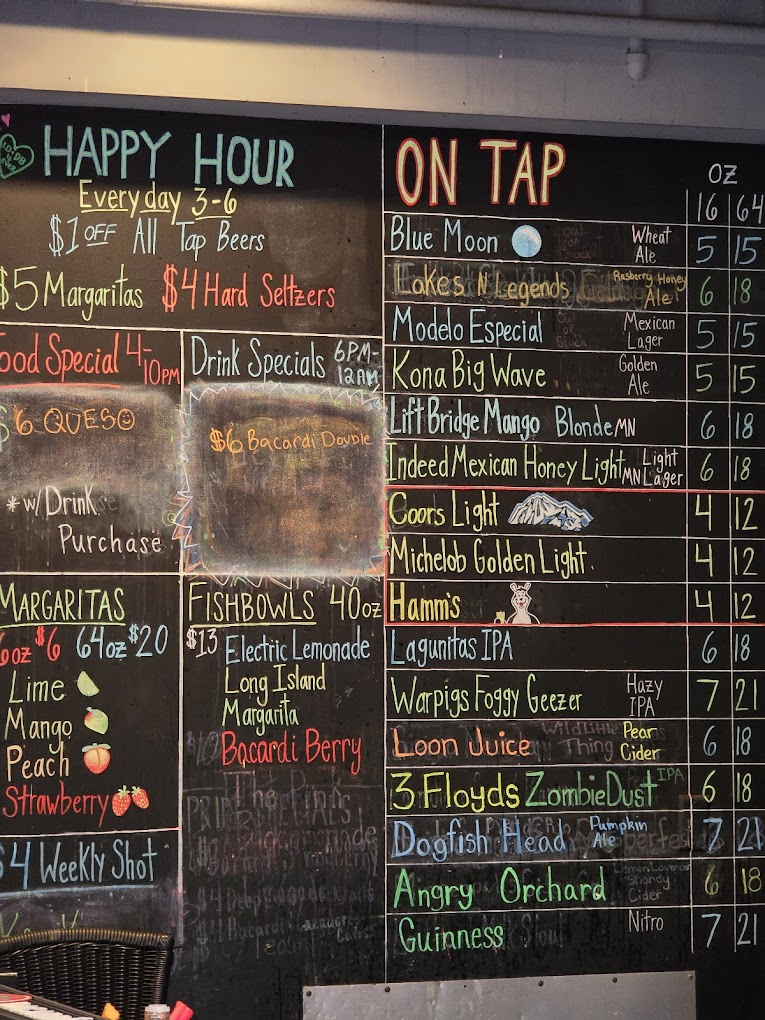 HAPPY HOUR
Everyday 3-6
$1 OFF All Tap Beers
$5 Margaritas $4 Hard Seltzers
Food Special 4-10PM
$6 QUESO
*w/ Drink
Purchase
Drink Specials 6PM-12AM
$6 Bacardi Double
MARGARITAS
6oz $6 64oz $20
Lime
Mango
Peach
Strawberry
$4 Weekly Shot
FISHBOWLS 40oz
$13 Electric Lemonade
Long Island
Margarita
Bacardi Berry
ON TAP OZ
16 64
Blue Moon Wheat Ale 5 15
Lakes N Legends Rasberry Honey Ale 6 18
Modelo Especial Mexican Lager 5 15
Kona Big Wave Golden Ale 5 15
Lift Bridge Mango Blonde MN 6 18
Indeed Mexican Honey Light MN Light Lager 6 18
Coors Light 4 12
Michelob Golden Light 4 12
Hamm's 4 12
Lagunitas IPA 6 18
Warpigs Foggy Geezer Hazy IPA 7 21
Loon Juice Pear Cider 6 18
3 Floyds Zombie Dust IPA 6 18
Dogfish Head Pumpkin Ale 7 21
Angry Orchard Cider 6 18
Guinness Nitro 7 21